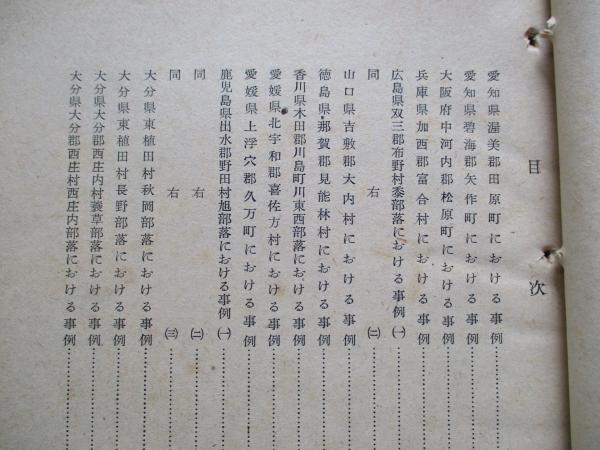 目次
愛知県渥美郡田原町における事例
愛知県碧海郡矢作町における事例
大阪府中河内郡松原町における事例
兵庫県加西郡富合村における事例
広島県双三郡布野村黍部落における事例 (一)
同右 (二)
山口県吉敷郡大内村における事例
徳島県那賀郡見能林村における事例
香川県木田郡川島町川東西部落における事例
愛媛県北宇和郡喜佐方村における事例
愛媛県上浮穴郡久万町における事例
鹿児島県出水郡野田村旭部落における事例 (一)
同右 (二)
同右 (三)
大分県東植田村秋岡部落における事例
大分県東植田村長野部落における事例
大分県大分郡西庄内村蓑草部落における事例
大分県大分郡西庄村西庄内部落における事例